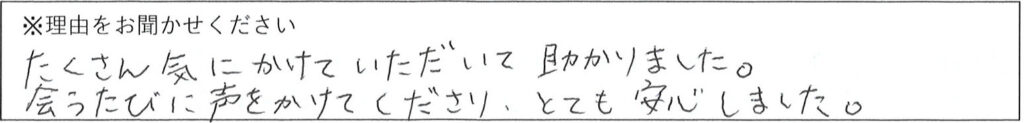 ※理由をお聞かせください
たくさん気にかけていただいて助かりました。
会うたびに声をかけてくださり、とても安心しました。